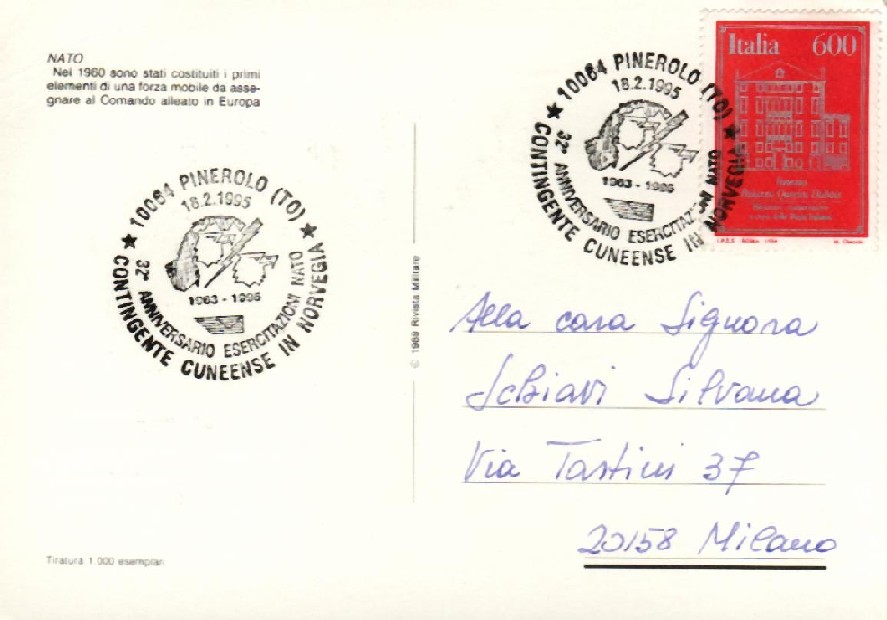 NATO
Nel 1960 sono stati costituiti i primi
elementi di una forza mobile da asse-
gnare al Comando alleato in Europa
★ 10064 PINEROLO (TO) ★
18.2.1995
1963 - 1995
32º ANNIVERSARIO ESERCITAZIONI NATO
CONTINGENTE CUNEENSE IN NORVEGIA
© 1989 Rivista Militare
Tiratura 1.000 esemplari
★ 10064 PINEROLO (TO) ★
18.2.1995
1963 - 1995
32º ANNIVERSARIO ESERCITAZIONI NATO
CONTINGENTE CUNEENSE IN NORVEGIA
Italia 600
I.P.Z.S. ROMA 1994
Alla cara Signora
Schiavi Silvana
Via Tartini 37
20158 Milano